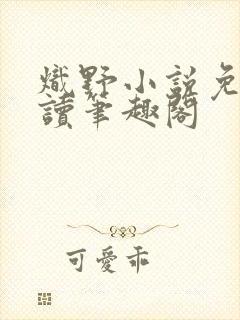 熾野小說免
讀筆趣閣
可愛乖